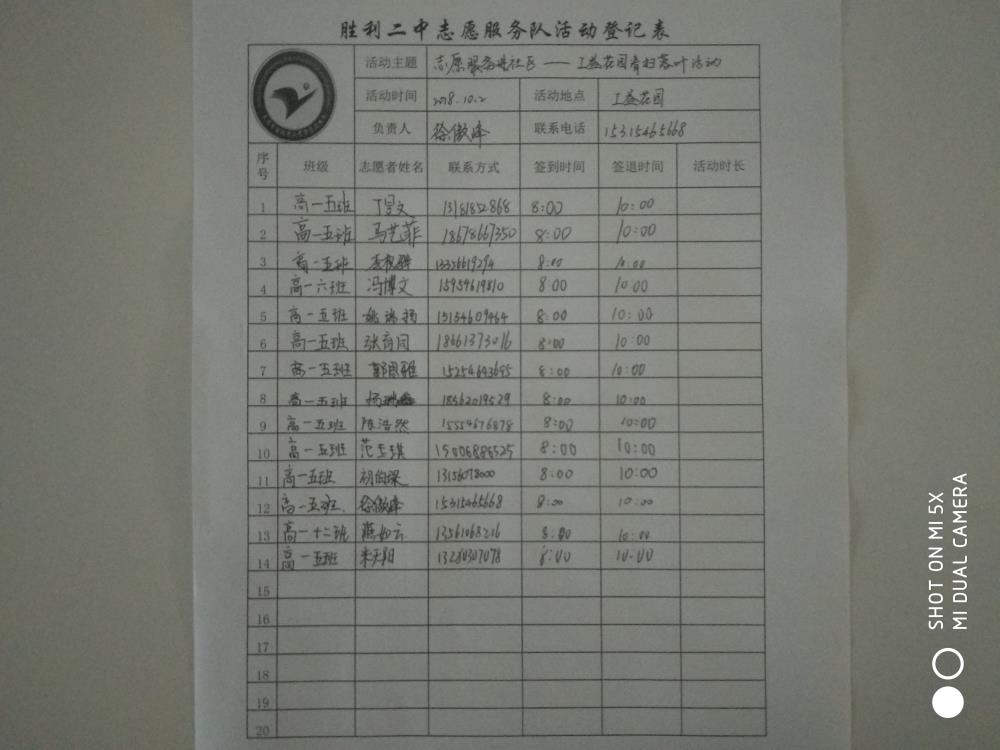 胜利二中志愿服务队活动登记表
活动主题 志愿服务进社区——工益花园青扫落叶活动
活动时间 2018.10.2 活动地点 工益花园
负责人 徐傲峰 联系电话 15315465668
序号 班级 志愿者姓名 联系方式 签到时间 签退时间 活动时长
1 高一五班 丁昱文 13181852868 8:00 10:00
2 高一五班 马艺菲 18678667350 8:00 10:00
3 高一五班 13356619294 8:00 10:00
4 高一六班 冯博文 15959619810 8:00 10:00
5 高一五班 姚瑞扬 15154609464 8:00 10:00
6 高一五班 张育同 18661373016 8:00 10:00
7 高一五班 郭恩雅 15254643695 8:00 10:00
8 高一五班 18562019529 8:00 10:00
9 高一五班 陈浩然 15554676878 8:00 10:00
10 高一五班 范圣琪 15006886525 8:00 10:00
11 高一五班 初伯琛 13156078000 8:00 10:00
12 高一五班. 徐傲峰 15315465668 8:00 10:00
13 高一十二班 燕如云 13561068216 8:00 10:00
14 高一五班 宋天阳 13280307078 8:00 10:00
15
16
17
18
19
20
SHOT ON MI 5X
MI DUAL CAMERA